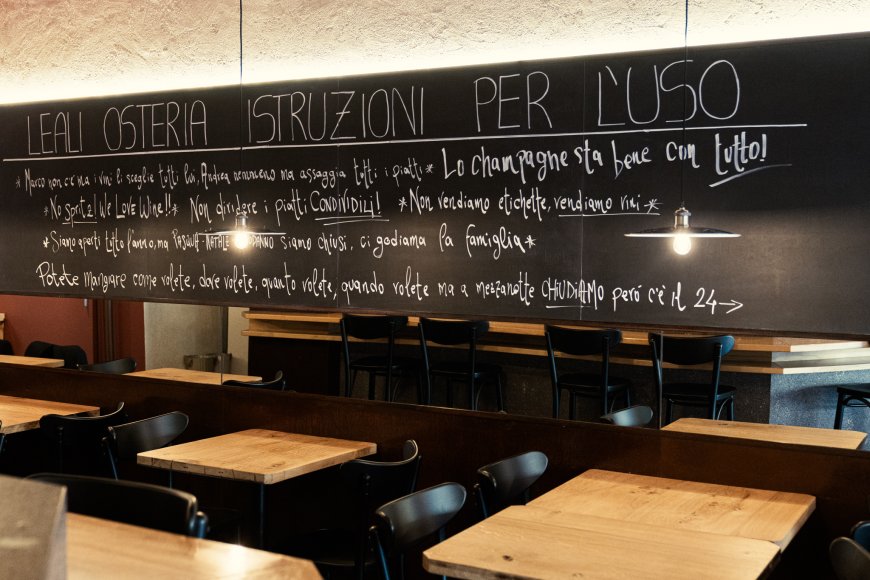 LEALI OSTERIA ISTRUZIONI PER L'USO
*Marco non c'è ma i vini li sceglie tutti lui, Andrea nemmeno ma assaggia tutti i piatti* Lo champagne sta bene con tutto!
*No Spritz! We Love Wine!!* Non dividere i piatti CONDIVIDILI! *Non vendiamo etichette, vendiamo vini*
*Siamo aperti tutto l'anno, ma PASQUA NATALE siamo chiusi, ci godiamo la famiglia*
Potete mangiare come volete, dove volete, quanto volete, quando volete ma a mezzanotte CHIUDIAMO però c'è il 24→